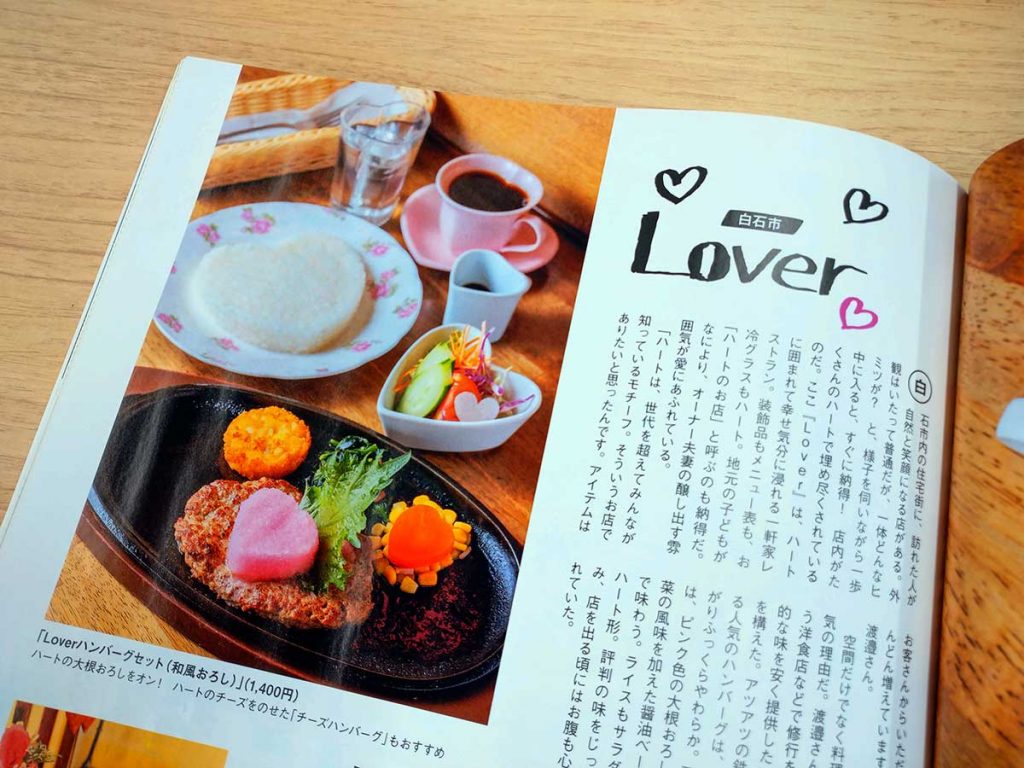 白石市
Lover
白石市内の住宅街に、訪れた人が
自然と笑顔になる店がある。外
観はいたって普通だが、一体どんなヒ
ミツが? と、様子を伺いながら一歩
中に入ると、すぐに納得! 店内がた
くさんのハートで埋め尽くされている
のだ。ここ『Lover』は、ハート
に囲まれて幸せ気分に浸れる一軒家レ
ストラン。装飾品もメニュー表も、お
冷グラスもハート。地元の子どもが
「ハートのお店」と呼ぶのも納得だ。
なにより、オーナー夫妻の醸し出す雰
囲気が愛にあふれている。
「ハートは、世代を超えてみんなが
知っているモチーフ。そういうお店で
ありたいと思ったんです。アイテムは
お客さんからいただ
んどん増えています
渡邉さん。
空間だけでなく料理
気の理由だ。渡邉さん
う洋食店などで修行を
的な味を安く提供した
を構えた。アツアツの鉄
る人気のハンバーグは、
がりふっくらやわらか。
は、ピンク色の大根おろし
菜の風味を加えた醤油ベー
で味わう。ライスもサラダ
ハート形。評判の味をじっ
み、店を出る頃にはお腹も心
れていた。
「Loverハンバーグセット(和風おろし)」(1,400円)
ハートの大根おろしをオン! ハートのチーズをのせた「チーズハンバーグ」もおすすめ